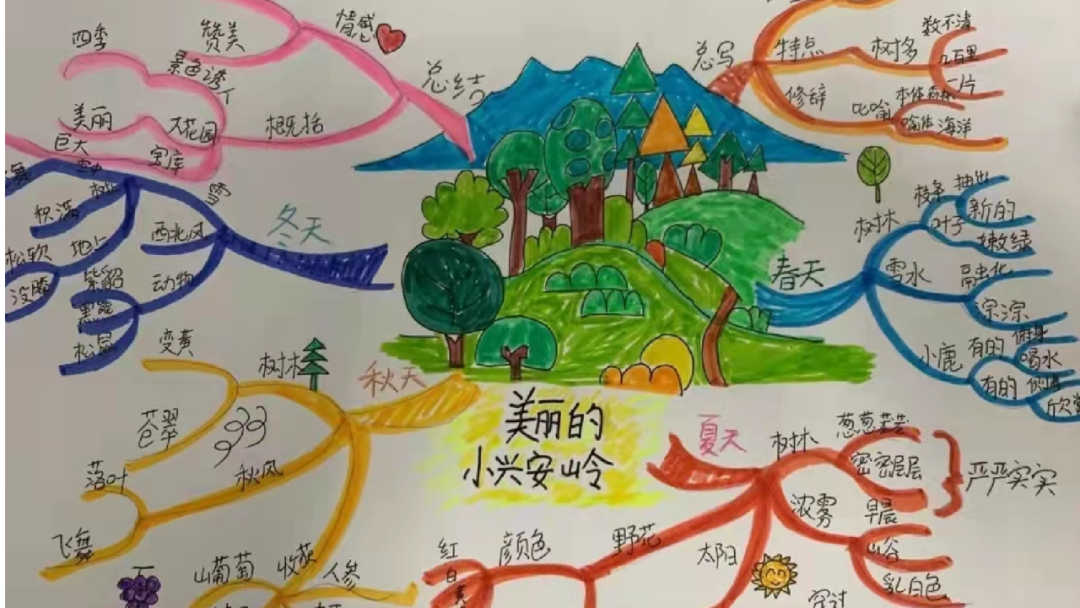 美丽的
小兴安岭
总写
特点
树多
数不清
几百里
一片
修辞
比喻
本体森林
喻体海洋
春天
树林
枝条
抽出
新的
叶子
嫩绿
雪水
融化
淙淙
小鹿
有的
俯身
喝水
有的
欣赏
夏天
树木
葱葱茏茏
密密层层
严严实实
浓雾
早晨
山谷
乳白色
太阳
野花
颜色
红
白
秋天
树林
变黄
苍翠
秋风
落叶
飞舞
收获
山葡萄
人参
冬天
雪
西北风
积满
地上
松软
没膝
动物
紫貂
黑熊
松鼠
总结
情感
赞美
四季
景色诱人
概括
大花园
美丽
宝库
巨大